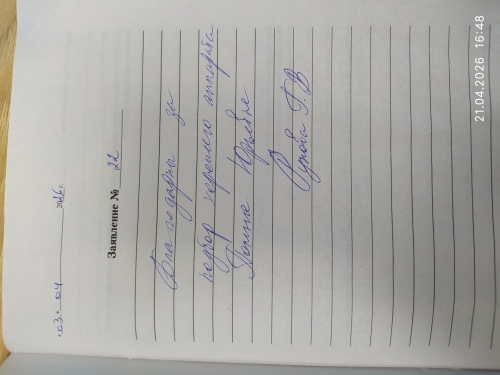 «03» 04 2026 г.
Заявление № 22
Благодарна за
подбор хорошего аппарата
Полине Юрьевне
Г. В
21.04.2026 16:48